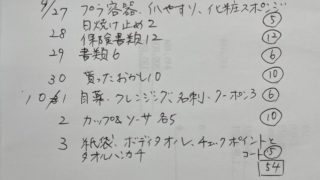 9/27 プラ容器、爪やすり、化粧スポンジ ⑤
日焼け止め2
28 保険書類12 ⑫
29 書類6 ⑥
30 貰ったおかし10 ⑩
10/1 自募、クレンジング、名刺、クーポン3 ⑥
2 カップ&ソーサ 各5 ⑩
3 紙袋、ボディタオル、チェックポイントと
タオルハンカチ コート ⑤
54